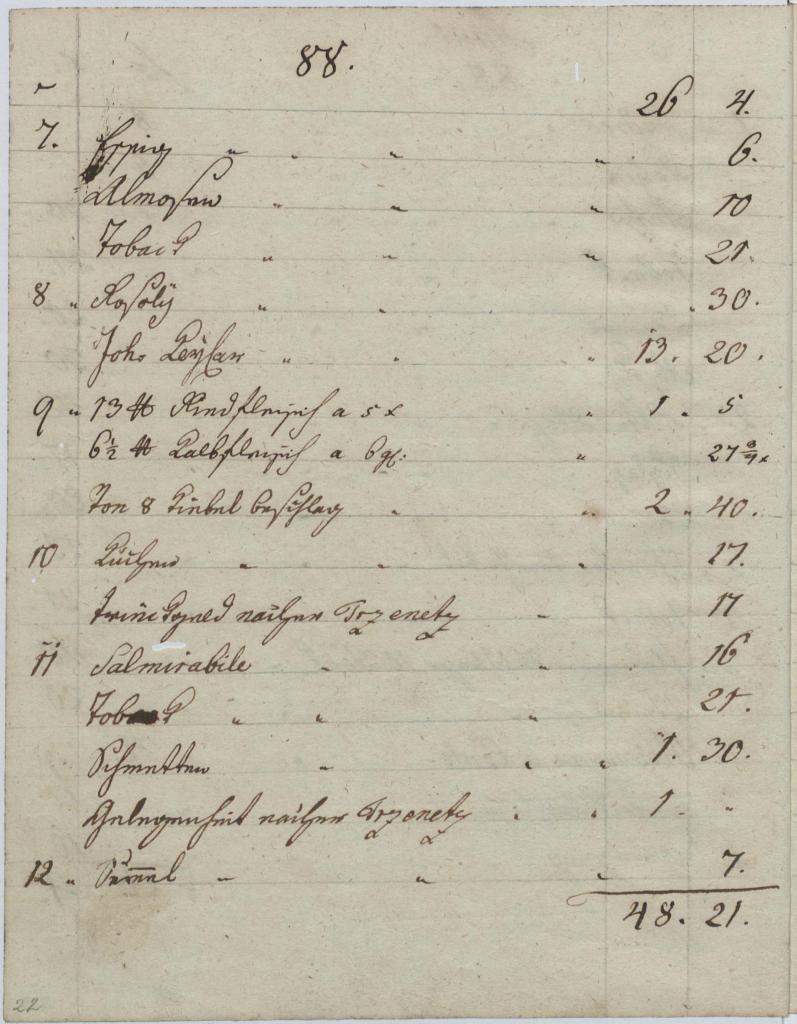 88.
26 4.
7. Essig " " " " 6.
Almosen " " " 10
Toback " " " 21.
8 " Rosoly " " " 30.
Joh. " " " 13. 20.
9 " 13 ℔ Rindfleisch a 5 x " 1. 5
6½ ℔ Kalbfleisch a 6 gl: " 27 x
Von 8 Kiebel beschlag " " 2 " 40.
10 Kuchen " " " 17.
nacher Trzenetz " 17
11 Salmirabile " " 16
Toback " " " 21.
Schmetten " " " 1. 30.
Gelegenheit nacher Trzenetz " " 1. "
12 " Semmel " " " 7.
48. 21.
22